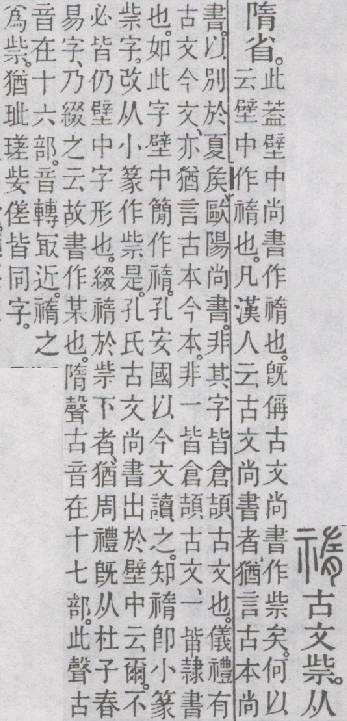 ⿰示⿱左月古文祡。从
隋省。
此葢壁中尚書作⿰示⿱左月也。旣偁古文尚書作祡矣。何以
云壁中作⿰示⿱左月也。凡漢人云古文尚書者、猶言古本尚
書。以別於夏矦、歐陽尚書。非其字皆倉頡古文也。儀禮有
古文今文、亦猶言古本今本。非一皆倉頡古文、一皆隸書
也。如此字壁中簡作⿰示⿱左月。孔安國以今文讀之。知⿰示⿱左月卽小篆
祡字。改从小篆作祡。是孔氏古文尚書出於壁中云爾。不
必皆仍壁中字形也。綴⿰示⿱左月於祡下者、猶周禮旣从杜子春
易字、乃綴之云故書作某也。隋聲古音在十七部。此聲古
音在十六部。音轉冣近。⿰示⿱左月之
爲祡。猶玼瑳姕傞皆同字。